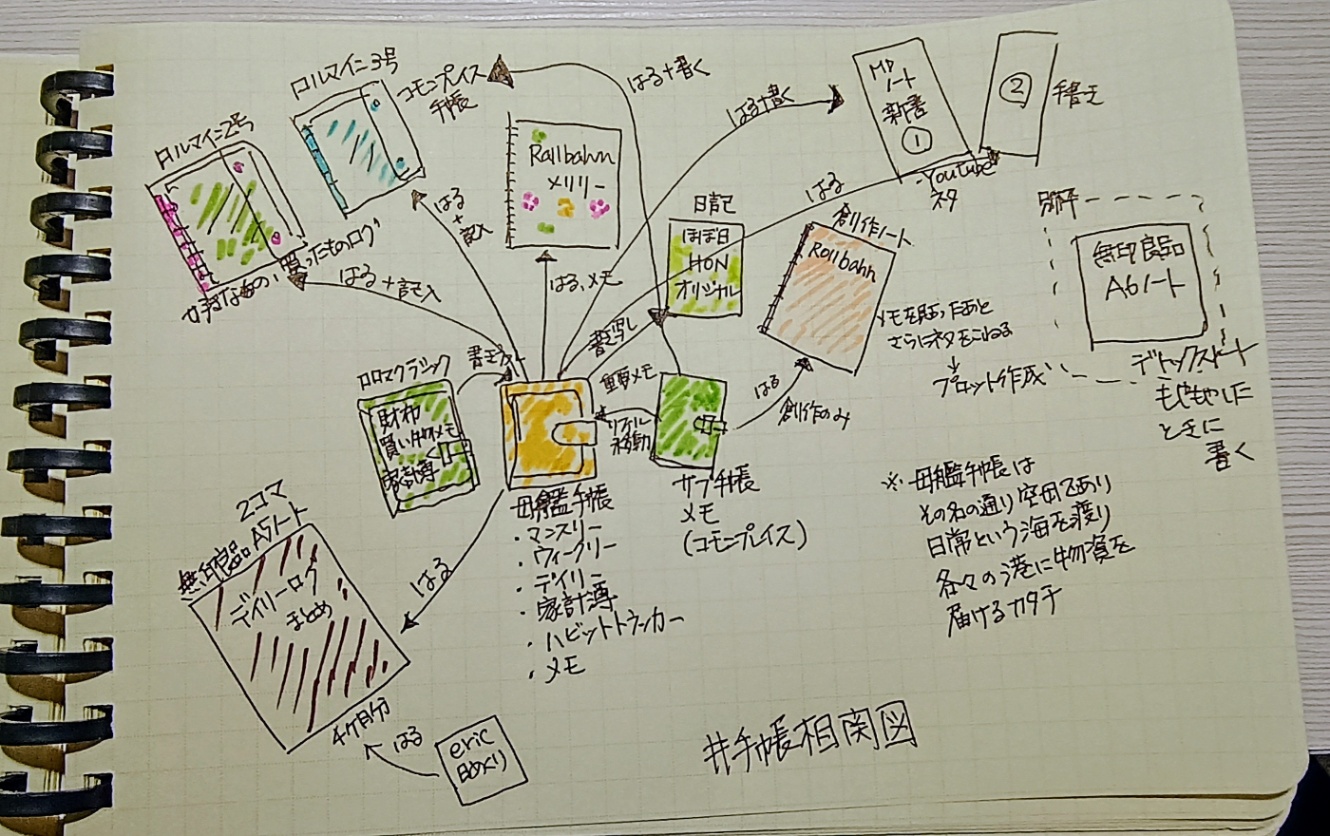 ロルマイニ3号
コモンプレイス
手帳
はる+書く
はる+書く
MD
ノート
新書
①
②
手書き
ロルマイニ2号
Rollbahn
メリリー
はる
+
記入
好きなもの、買ったものログ
はる+記入
はる、メモ
日記
ほぼ日
HON
オリジナル
はる
YouTube
ネタ
創作ノート
Rollbahn
別枠
無印良品
A6ノート
書き写し
メモを貼ったあと
さらにネタをこねる
↓
プロット作成
デトックスノート
もやもやした
ときに
書く
ロロマクラシック
財布
買い物メモ
家計簿
重要メモ
リフィル
移動
はる
創作のみ
母艦手帳
・マンスリー
・ウィークリー
・デイリー
・家計簿
・ハビットトラッカー
・メモ
サブ手帳
メモ
(コモンプレイス)
※母艦手帳は
その名の通り空母であり
日常という海を渡り
各々の港に物資を
届けるカタチ
2コマ
無印良品A5ノート
デイリーログ
まとめ
はる
4ヶ月分
はる
eric
日めくり
#手帳相関図